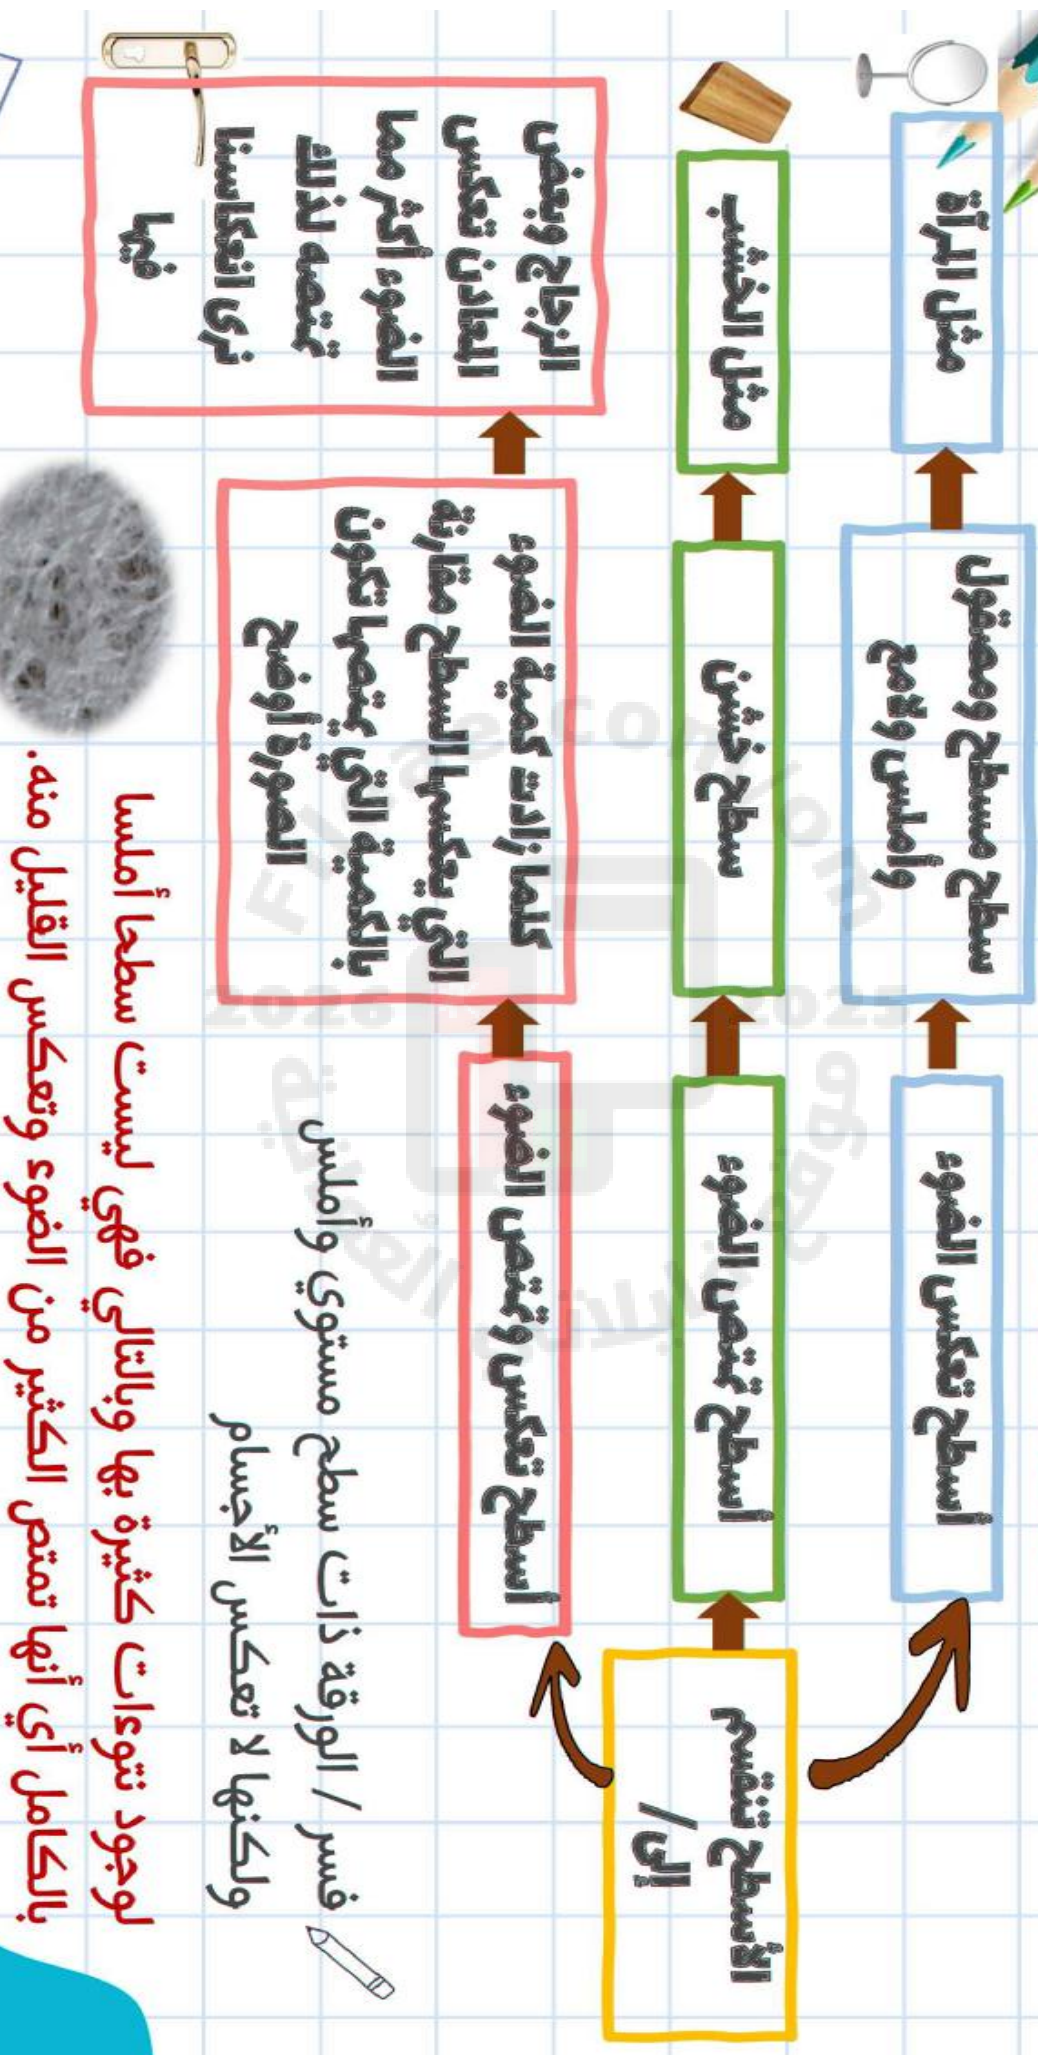 الأسطح تنقسم
إلى /
أسطح تعكس الضوء
سطح مسطح ومصقول
وأملس ولامع
مثل المرآة
أسطح تمتص الضوء
سطح خشن
مثل الخشب
أسطح تعكس وتمتص الضوء
كلما زادت كمية الضوء
التي يعكسها السطح مقارنة
بالكمية التي يمتصها تكون
الصورة أوضح
الزجاج وبعض
المعادن تعكس
الضوء أكثر مما
تمتصه لذلك
نرى انعكاسنا
فيها
فسر / الورقة ذات سطح مستوي وأملس
ولكنها لا تعكس الأجسام
لوجود نتوءات كثيرة بها وبالتالي فهي ليست سطحا أملسا
بالكامل أي أنها تمتص الكثير من الضوء وتعكس القليل منه.
موقع المناهج العمانية
2026 2025
Filae.com/om